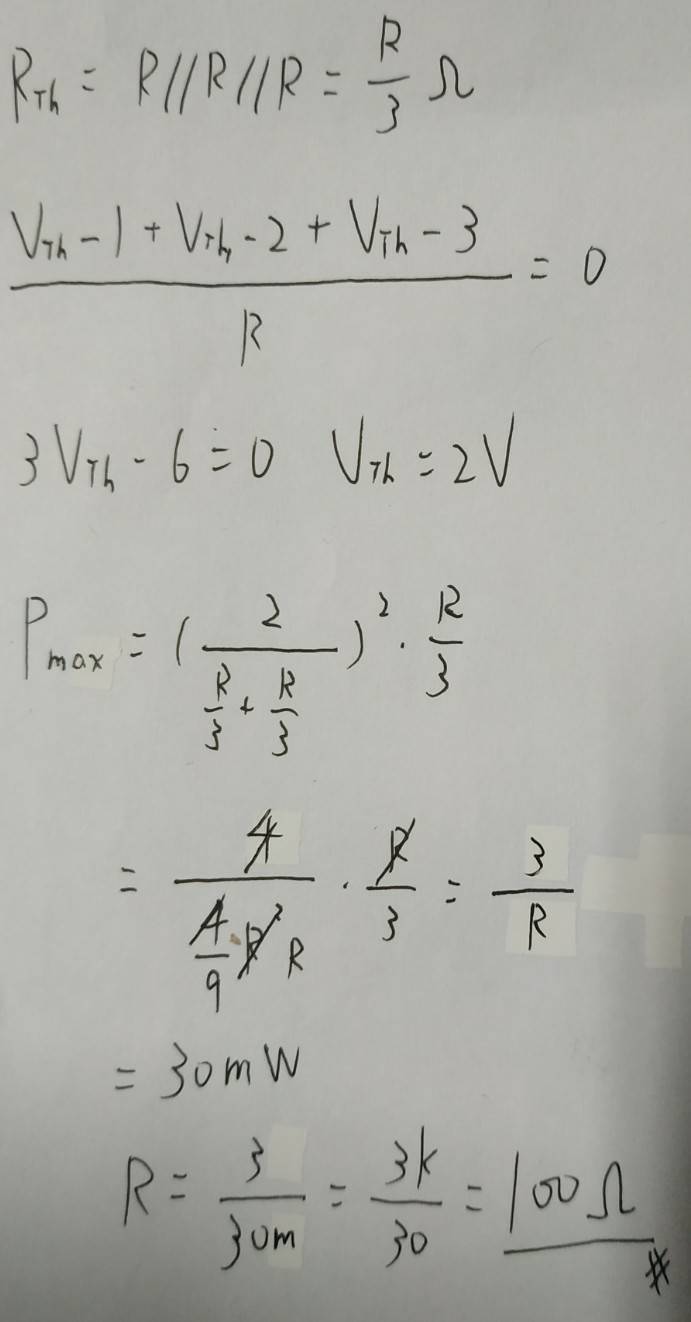 R_Th = R//R//R = R/3 Ω
(V_Th - 1 + V_Th - 2 + V_Th - 3)/R = 0
3V_Th - 6 = 0 V_Th = 2V
P_max = (2/(R/3 + R/3))² · R/3
= 4/(4/9 · R² R) · R/3 = 3/R
= 30mW
R = 3/30m = 3k/30 = 100Ω #